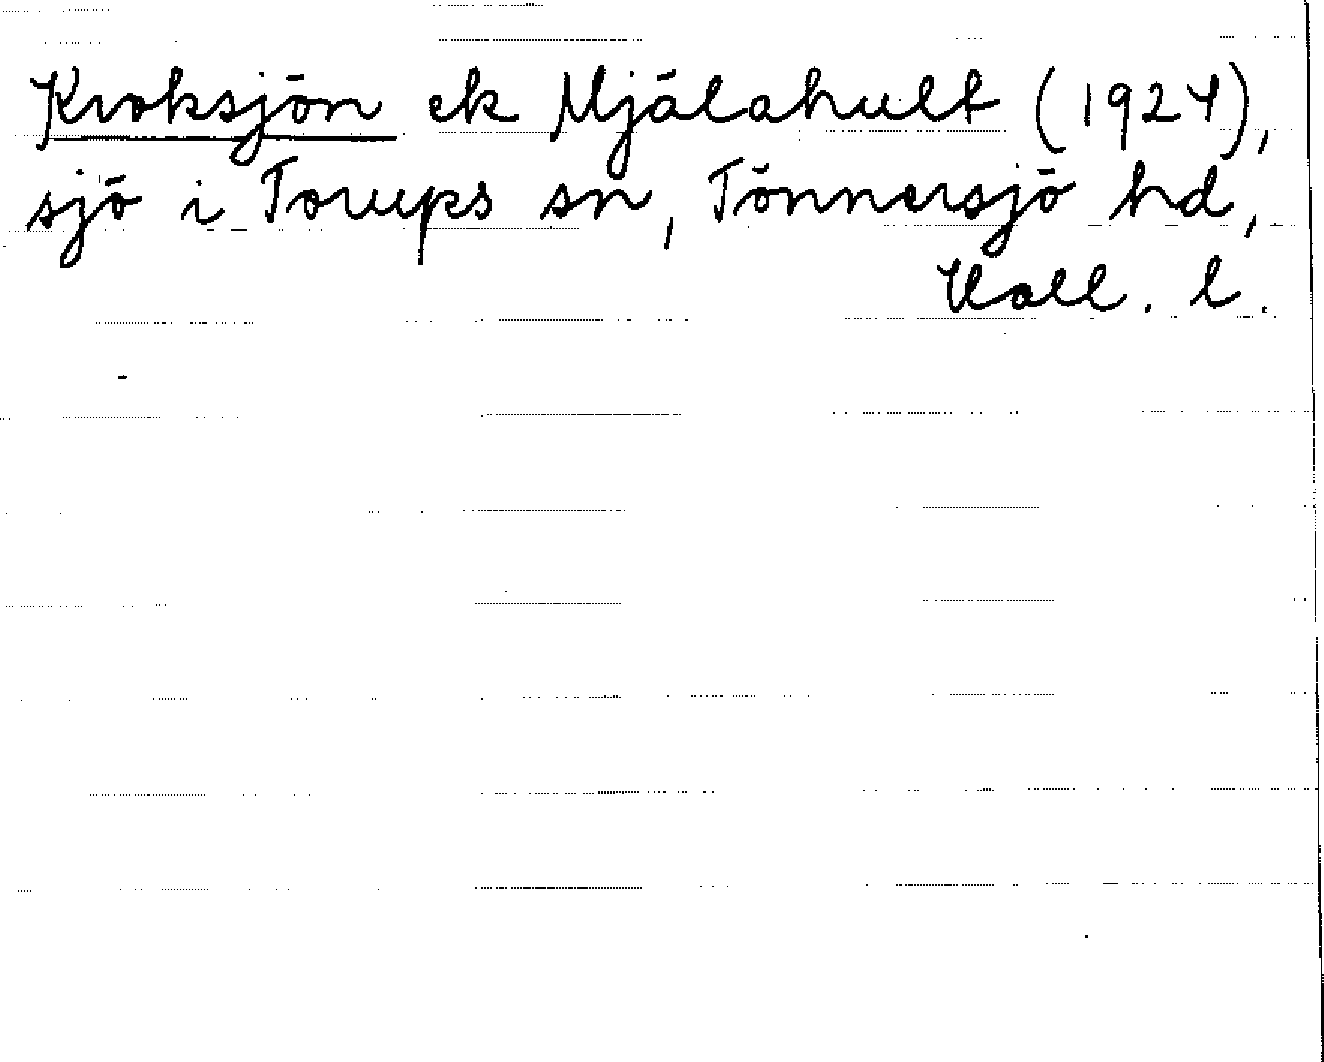 Kroksjön ek Mjälahult (1924),
sjö i Torups sn, Tönnersjö hd,
Hall. l.